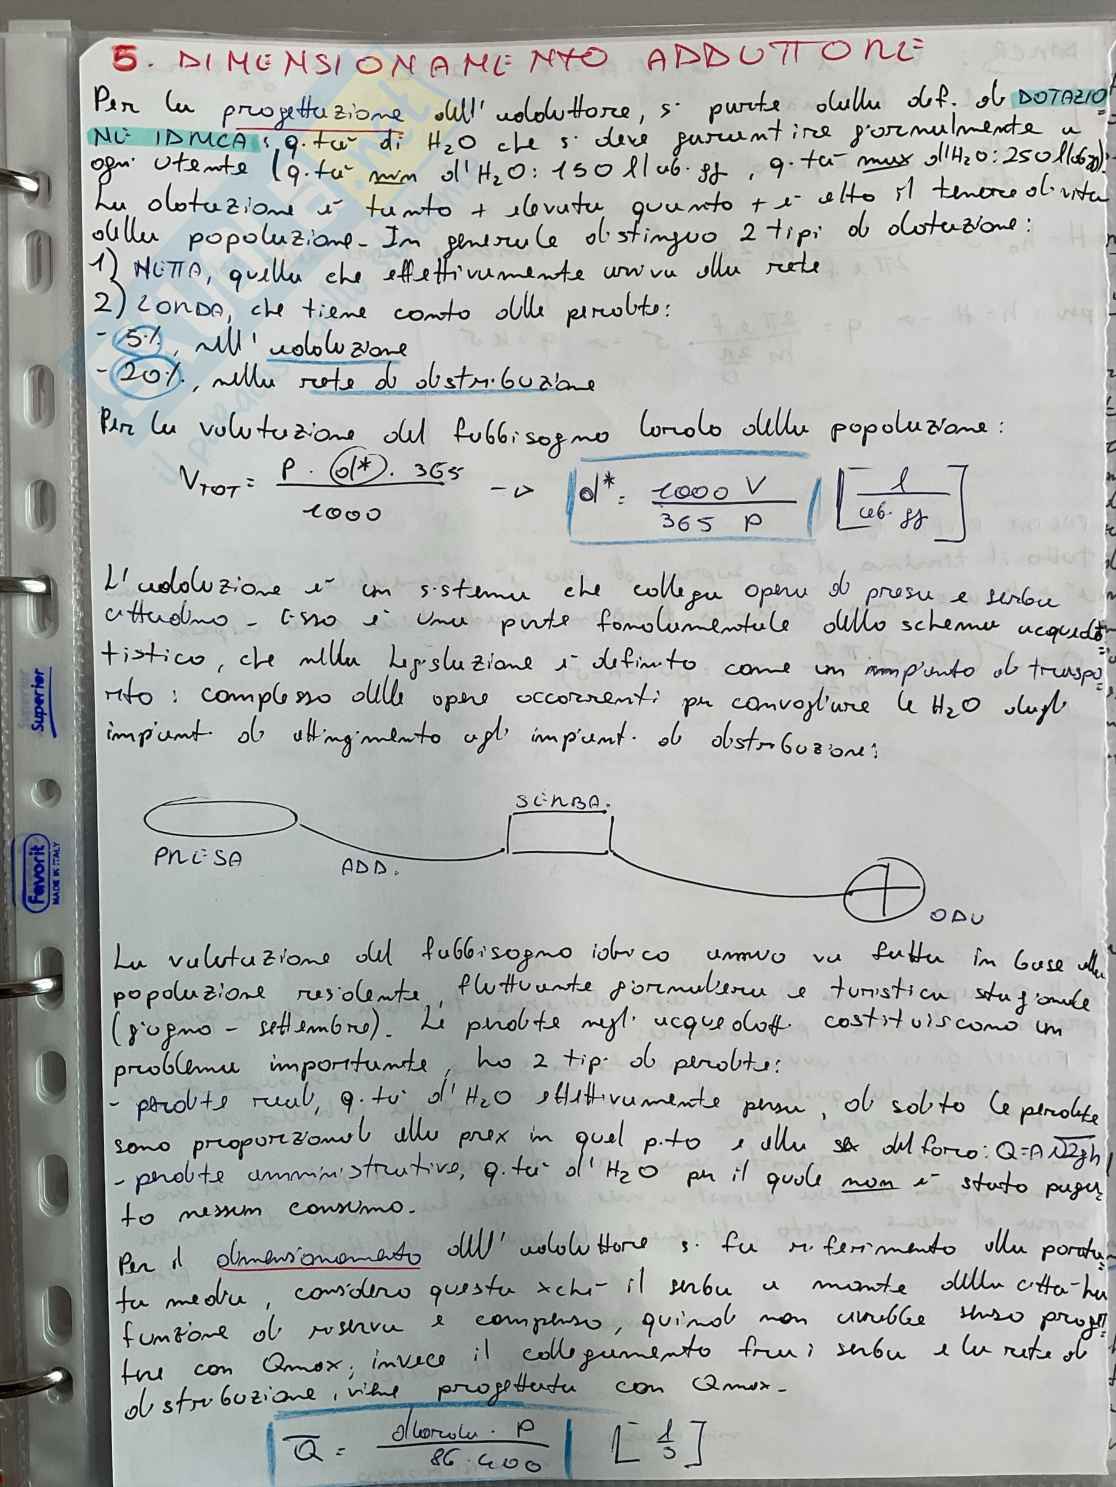 5. DIMENSIONAMENTO ADDUTTORE
Per la progettazione dell'adduttore, si parte dalla def. di DOTAZIO=
NE IDRICA: q.tà di H2O che si deve garantire giornalmente a
ogni utente (q.tà min d'H2O: 150 l/ab.gg, q.tà max d'H2O: 250 l/abgg).
La dotazione è tanto + elevata quanto + è alto il tenore di vita
della popolazione. In generale distinguo 2 tipi di dotazione:
1) NETTA, quella che effettivamente arriva alla rete
2) LORDA, che tiene conto delle perdite:
- 5%, nell'adduzione
- 20%, nella rete di distribuzione
Per la valutazione del fabbisogno lordo della popolazione:
VTOT = P · d* · 365 / 1000 -> d* = 1000 V / 365 P [l / ab. gg]
L'adduzione è un sistema che collega opera di presa e serba
cittadino - Esso è una parte fondamentale dello schema acquedot=
tistico, che nella legislazione è definito come un impianto di traspo=
rto: complesso delle opere occorrenti per convogliare le H2O dagli
impianti di attingimento agli impianti di distribuzione:
SERBA.
PRESA
ADD.
ODU
La valutazione del fabbisogno idrico annuo va fatta in base alla
popolazione residente, fluttuante giornaliera e turistica stagionale
(giugno - settembre). Le perdite negli acquedotti costituiscono un
problema importante, ho 2 tipi di perdite:
- perdite reali, q.tà d'H2O effettivamente persa, di solito le perdite
sono proporzionali alla prex in quel p.to e alla sex del foro: Q=A√2gh
- perdite amministrative, q.tà d'H2O per il quale non è stato paga=
to nessun consumo.
Per il dimensionamento dell'adduttore si fa riferimento alla porta=
ta media, considero questa xchè il serba a monte della città ha
funzione di riserva e compenso, quindi non avrebbe senso proget=
tare con Qmax; invece il collegamento fra i serba e la rete di
distribuzione, viene progettata con Qmax.
Q̅ = dlorda · P / 86.400 [l/s]
Superior
Favorit
MADE IN ITALY